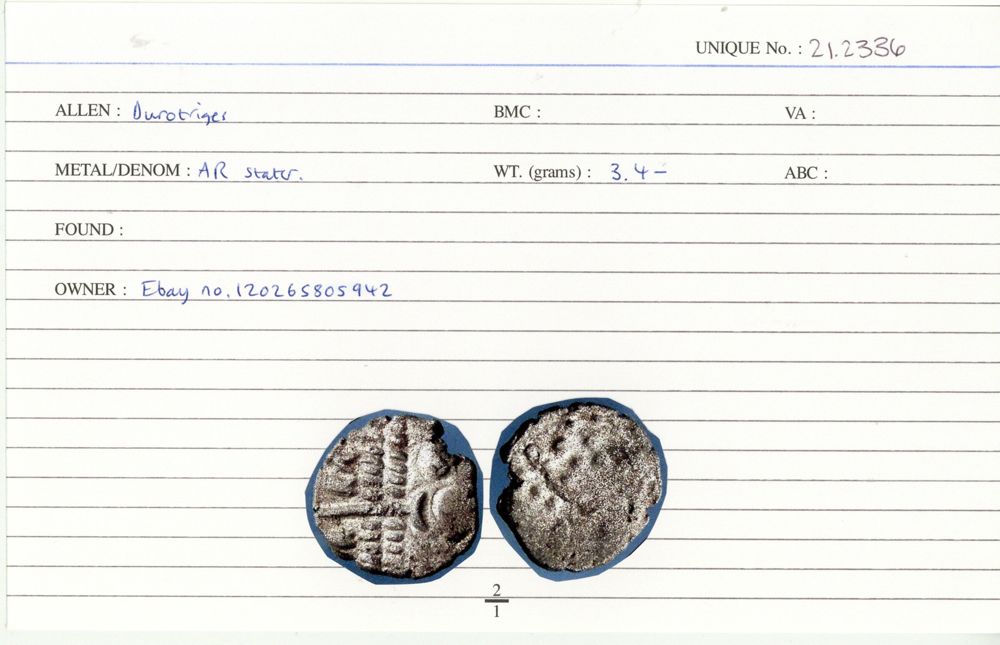 UNIQUE No. : 21.2336
ALLEN : Durotriges BMC : VA :
METAL/DENOM : AR stater. WT. (grams) : 3.4 – ABC :
FOUND :
OWNER : Ebay no. 120265805942
2
1